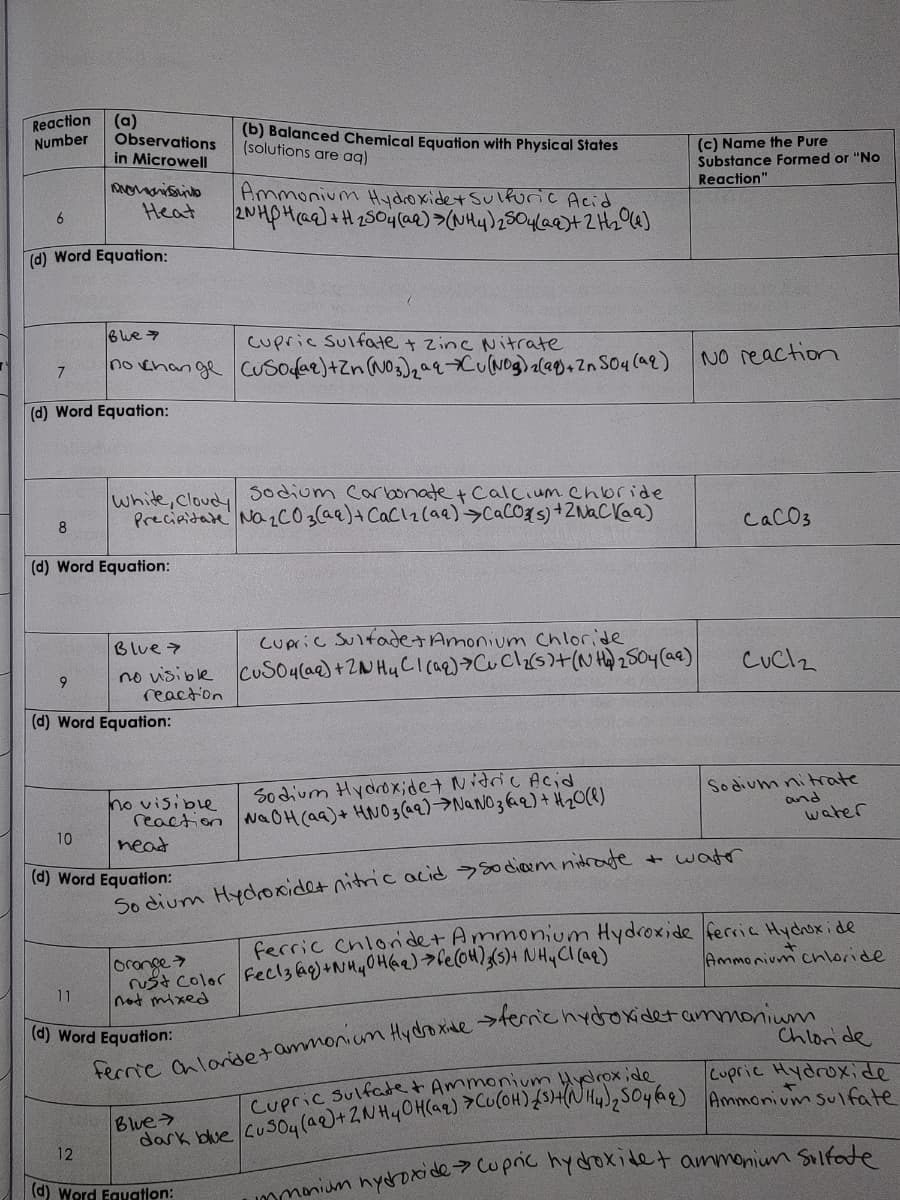 Reaction Number (a) Observations in Microwell (b) Balanced Chemical Equation with Physical States (solutions are aq) (c) Name the Pure Substance Formed or "No Reaction"
6
Heat
Ammonium Hydroxide + Sulfuric Acid
2NH4OH(aq) + H2SO4(aq) → (NH4)2SO4(aq) + 2H2O(l)
(d) Word Equation:
7
Blue →
no change
Cupric Sulfate + Zinc Nitrate
CuSO4(aq) + Zn(NO3)2aq → Cu(NO3)2(aq) + ZnSO4(aq)
NO reaction
(d) Word Equation:
8
White, Cloudy
Precipitate
Sodium Carbonate + Calcium Chloride
Na2CO3(aq) + CaCl2(aq) → CaCO3(s) + 2NaCl(aq)
CaCO3
(d) Word Equation:
9
Blue →
no visible
reaction
Cupric Sulfate + Amonium Chloride
CuSO4(aq) + 2NH4Cl(aq) → CuCl2(s) + (NH4)2SO4(aq)
CuCl2
(d) Word Equation:
10
no visible
reaction
heat
Sodium Hydroxide + Nitric Acid
NaOH(aq) + HNO3(aq) → NaNO3(aq) + H2O(l)
Sodium nitrate
and
water
(d) Word Equation:
Sodium Hydroxide + nitric acid → sodium nitrate + water
11
Orange →
rust color
not mixed
ferric Chloride + Ammonium Hydroxide
FeCl3(aq) + NH4OH(aq) → Fe(OH)3(s) + NH4Cl(aq)
ferric Hydroxide
+
Ammonium chloride
(d) Word Equation:
ferric Chloride + ammonium Hydroxide → ferric hydroxide + ammonium
Chloride
12
Blue →
dark blue
Cupric Sulfate + Ammonium Hydroxide
CuSO4(aq) + 2NH4OH(aq) → Cu(OH)2(s) + (NH4)2SO4(aq)
Cupric Hydroxide
+
Ammonium sulfate
(d) Word Equation:
hydroxide → cupric hydroxide + ammonium sulfate